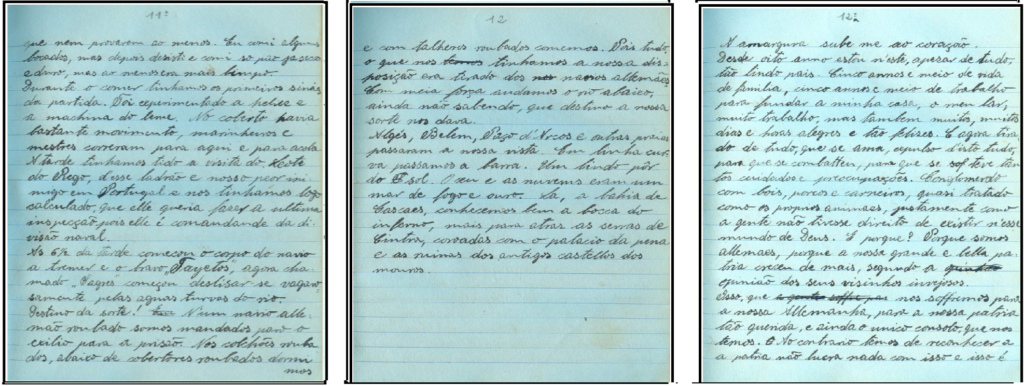 11ª
que nem proverem ao menos. Eu comi alguns
bocados, mas depois desisti e comi só pão fresco
e duro, mas ao menos era mais limpo.
Durante o comer tinhamos os primeiros sinaes
da partida. Foi experimentado a helice e
a machina do leme. No coberto havia
bastante movimento, marinheiros e
mestres correram para aqui e para acolá
A tarde tinhamos tido a visita do Leote
do Rego, d'esse ladrão e nosso peor ini-
migo em Portugal e nos tinhamos logo
calculado, que elle queria fazer a ultima
inspecção, pois elle é comandande da di-
visão naval.
As 6½ da tarde começou o corpo do navio
a tremer e o bravo, Taygetos, agora cha-
mado, Sagres começou deslisar-se vagaro-
samente pelas aguas turvas do rio.
Destino da sorte! Num navio alle-
mão roubado somos mandados para o
exilio para a prisão. Nos colchões rouba-
dos, abaixo de cobertores roubados dormi
mos
12
e com talheres roubados comemos. Pois tudo,
o que nos tinhamos a nossa dis-
posição era tirado dos navios allemães.
Com meia força andamos o rio abaixo,
ainda não sabendo, que destino a nossa
sorte nos dava.
Algés, Belem, Paço d'Arcos e outras praias
passaram a nossa vista. Em linha cur-
va passamos a barra. Um lindo pôr
do sol. O ceu e as nuvens eram um
mar de fogo e ouro. Lá, a bahia de
Cascaes, conhecemos bem a bocca do
inferno, mais para atras as serras de
Cintra, coroadas com o palacio da pena
e as ruinas dos antigos castellos dos
mouros.
12ª
A amargura sube me ao coração.
Desde oito anno estou n'este, apesar de tudo,
tão lindo pais. Cinco annos e meio de vida
de familia, cinco annos e meio de trabalho
para fundar a minha casa, o meu lar,
muito trabalho, mas tambem muitos, muitos
dias e horas alegres e tão felizes. E agora tira-
do de tudo, que se ama, expulso d'isto tudo,
para que se combatteu, para que se teve tan
tos cuidados e preoccupações. Conglomerado
com bois, porcos e carneiros, quasi tratado
como os proprios animaes, justamente como
a gente não tivesse direito de existir n'esse
mundo de Deus. E porque? Porque somos
allemães, porque a nossa grande e bella pa-
tria cresceu de mais, segundo a
opinião dos seus visinhos invejosos.
Isso, que nos soffremos para
a nossa Allemanha, para a nossa patria
tão querida, e ainda o unico consolo, que nos
temos. Ao contrario temos de reconhecer a
a patria não lucra nada com isso e isso é